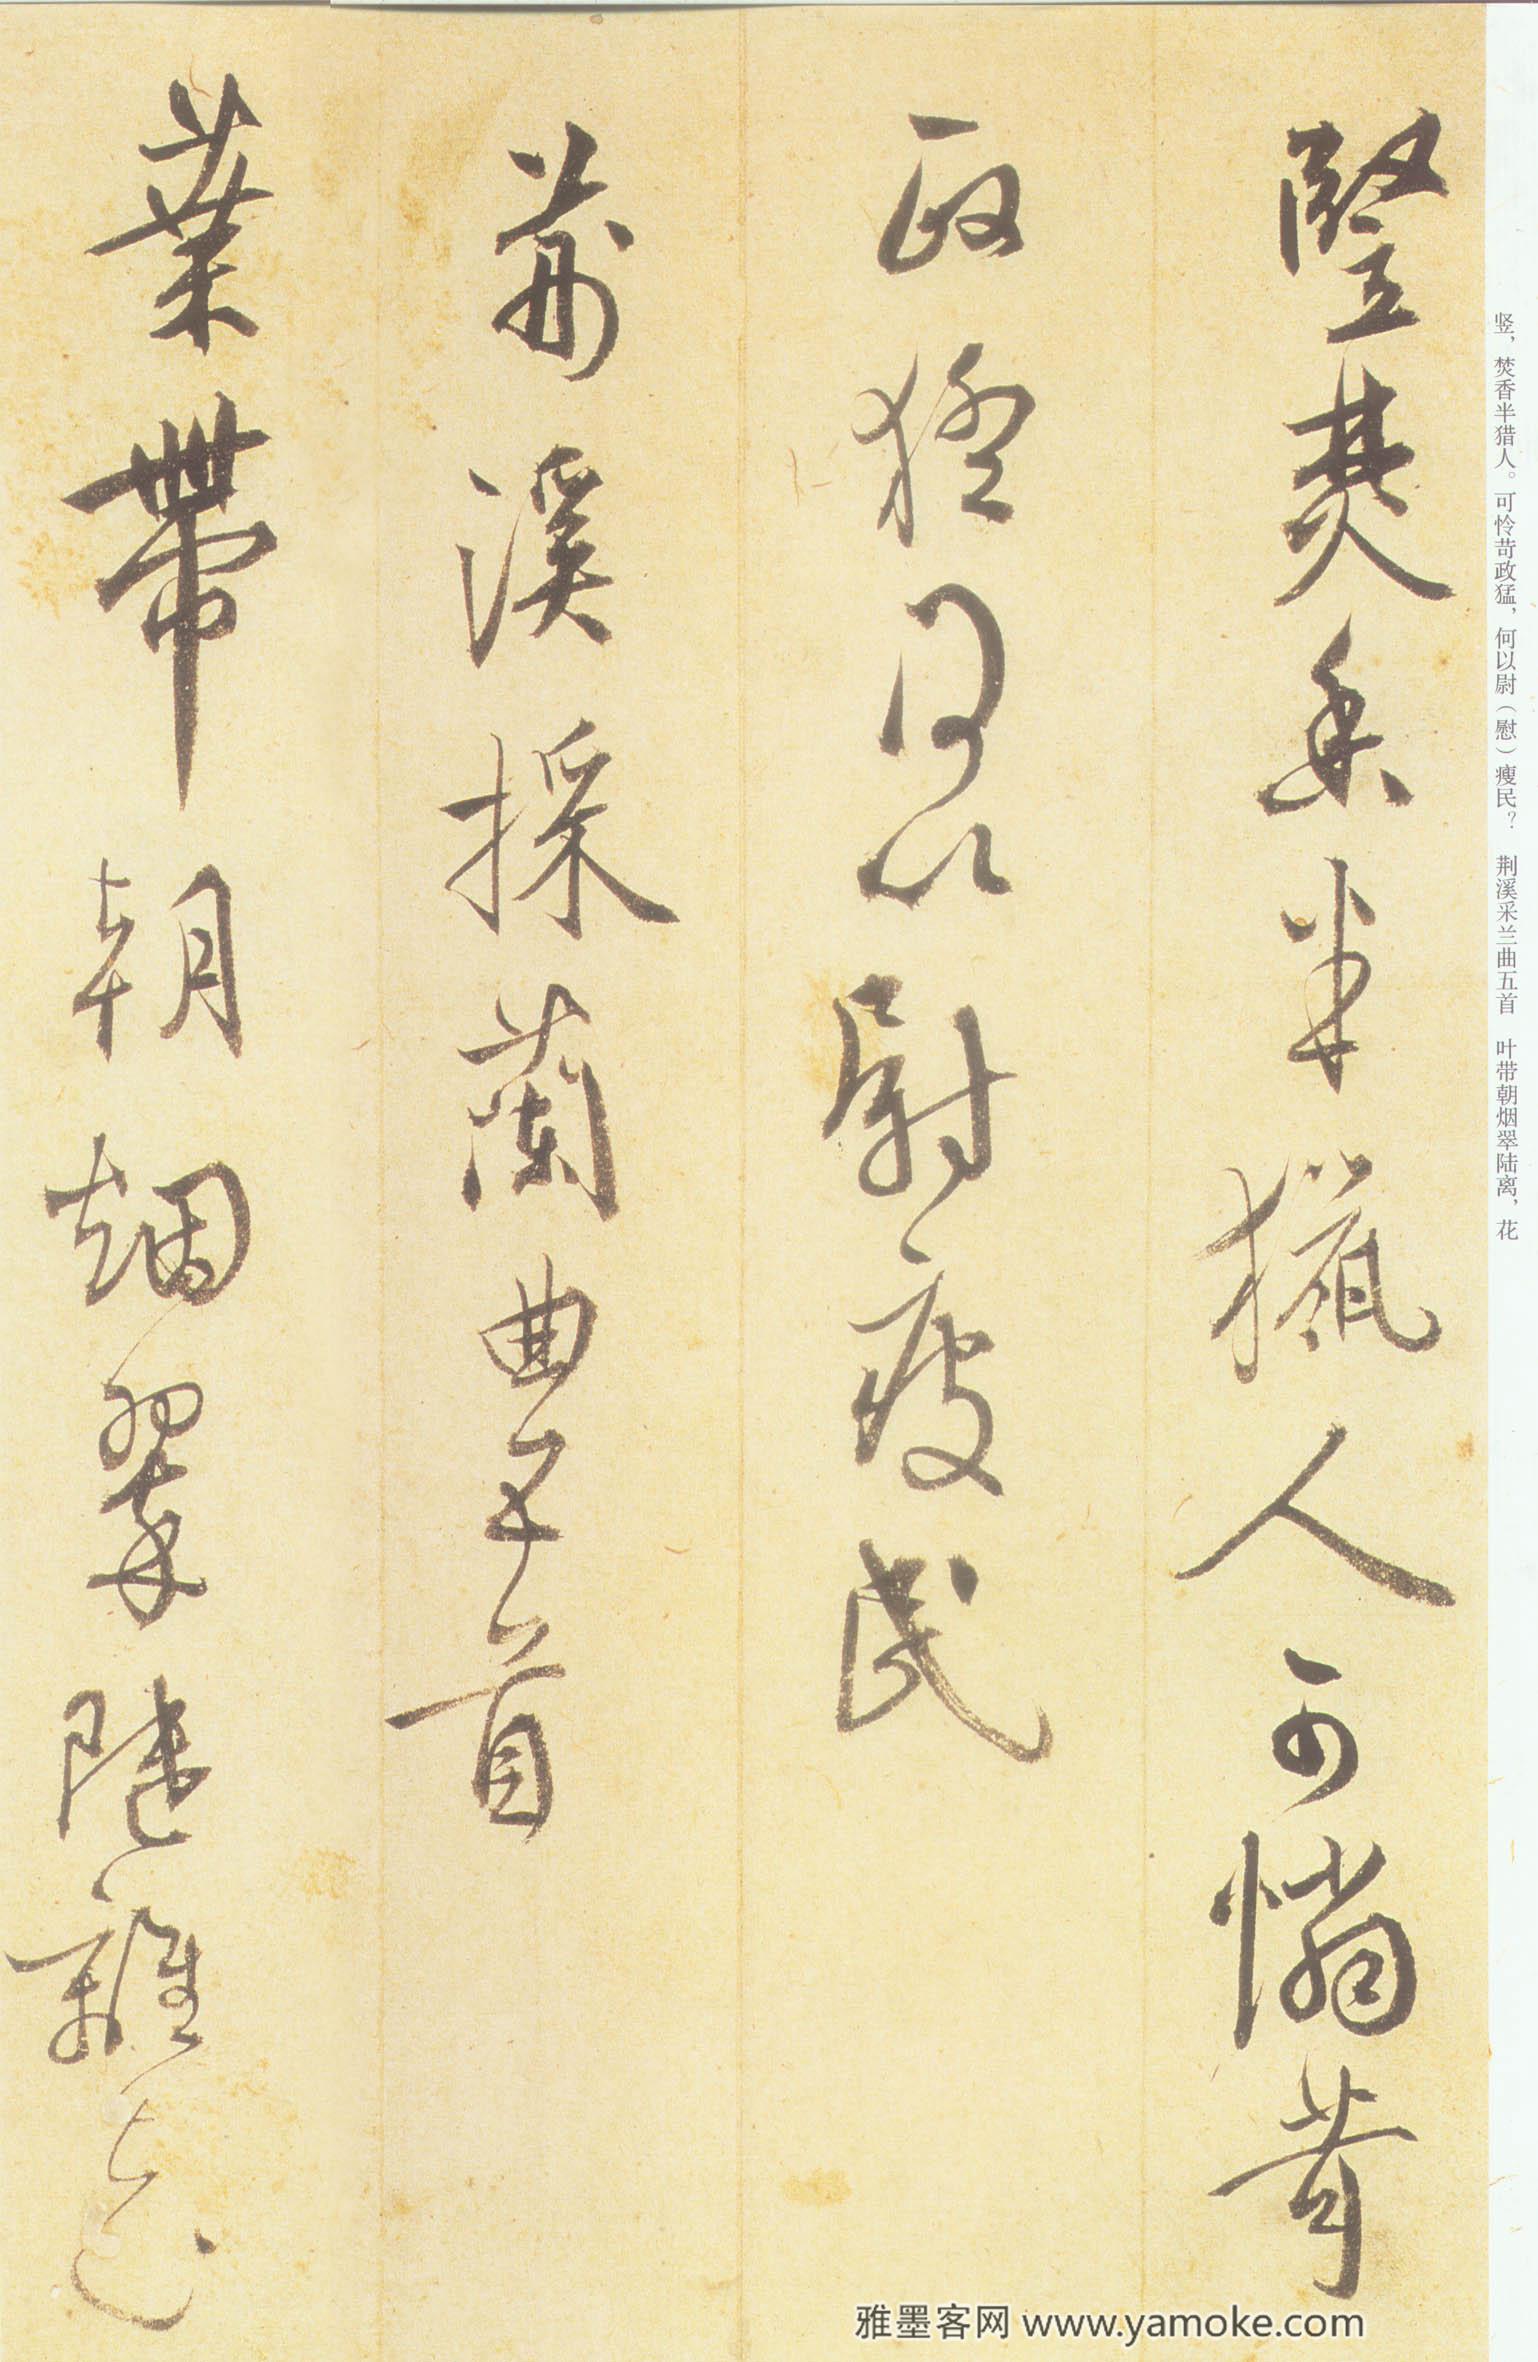 竖，焚香半猎人。可怜苛政猛，何以尉（慰）瘦民？ 荆溪采兰曲五首 叶带朝烟翠陆离，花
豎焚香半獵人可憐苛
政猛何以尉瘦民
荊溪採蘭曲五首
葉帶朝烟翠陸離花
雅墨客网 www.yamoke.com